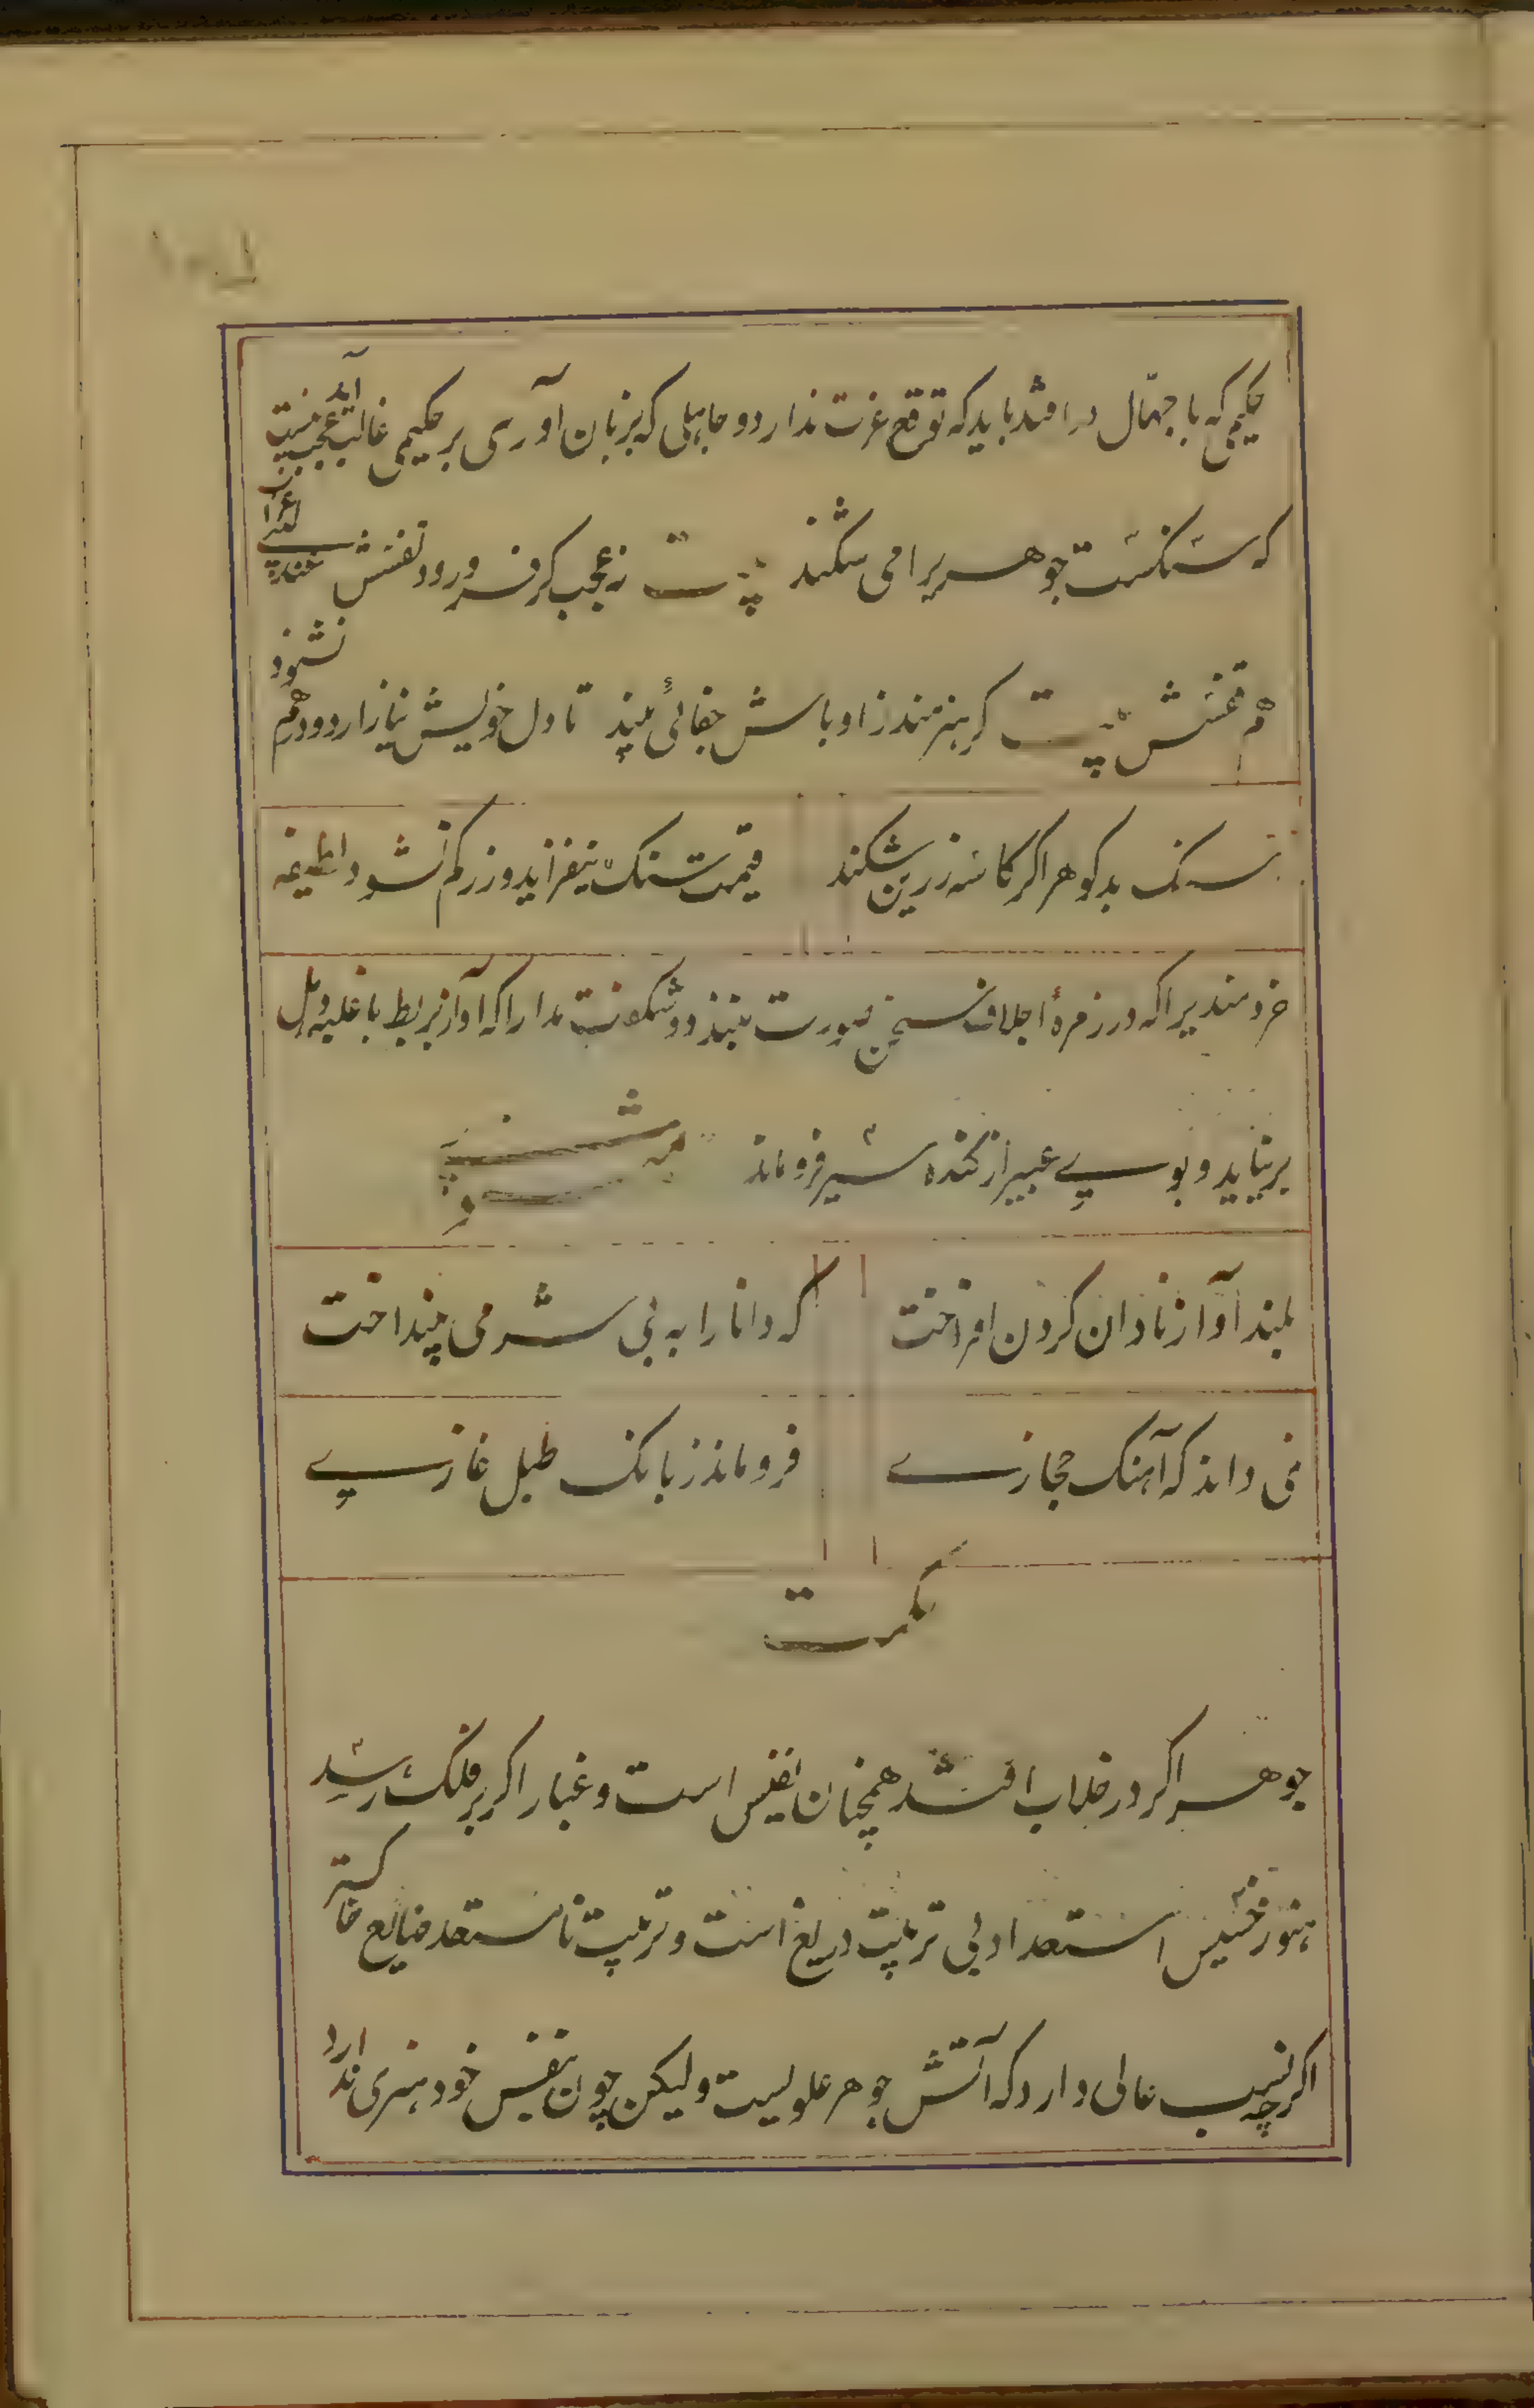 حکیمی که با جهال درافتد باید که توقع عزت ندارد و جاهلی که بزبان آوری بر حکیمی غالب آید عجب نیست
که سنگست جوهریرا می شکند بیت نه عجب کر فرو رود نفسش عندلیبی غراب
هم قفسش بیت کر هنرمند ز اوباش جفائی بیند تا دل خویش نیازارد و درهم نشود
سنک بدکوهر اکر کاسه زرین شکند قیمت سنک نیفزاید و زر کم نشود لطیفه
خردمندیرا که در زمرهٔ اجلاف سخن صورت نبندد شکفت مدار که آواز بربط با غلبه دهل
برنیاید و بوی عبیر از کنده سیر فروماند مثنوی
بلند آواز نادان کردن افراخت که دانا را به بی شرمی بینداخت
نمی داند که آهنک حجازی فروماند ز بانک طبل غازی
حکمت
جوهر اکر در خلاب افتد همچنان نفیس است و غبار اکر بر فلک رسد
هنوز خسیس استعداد بی تربیت دریغ است و تربیت نامستعد ضایع خاکستر
اکرچه نسب عالی دارد که آتش جوهر علویست ولیکن چون بنفس خود هنری ندارد